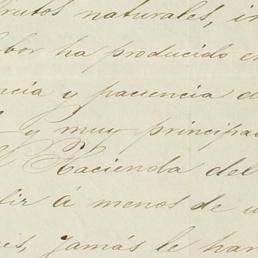 frutos naturales, in
bor ha producido en
ncia y paciencia d
y muy principal
Hacienda del
tir á menos de u
es, jamás le han